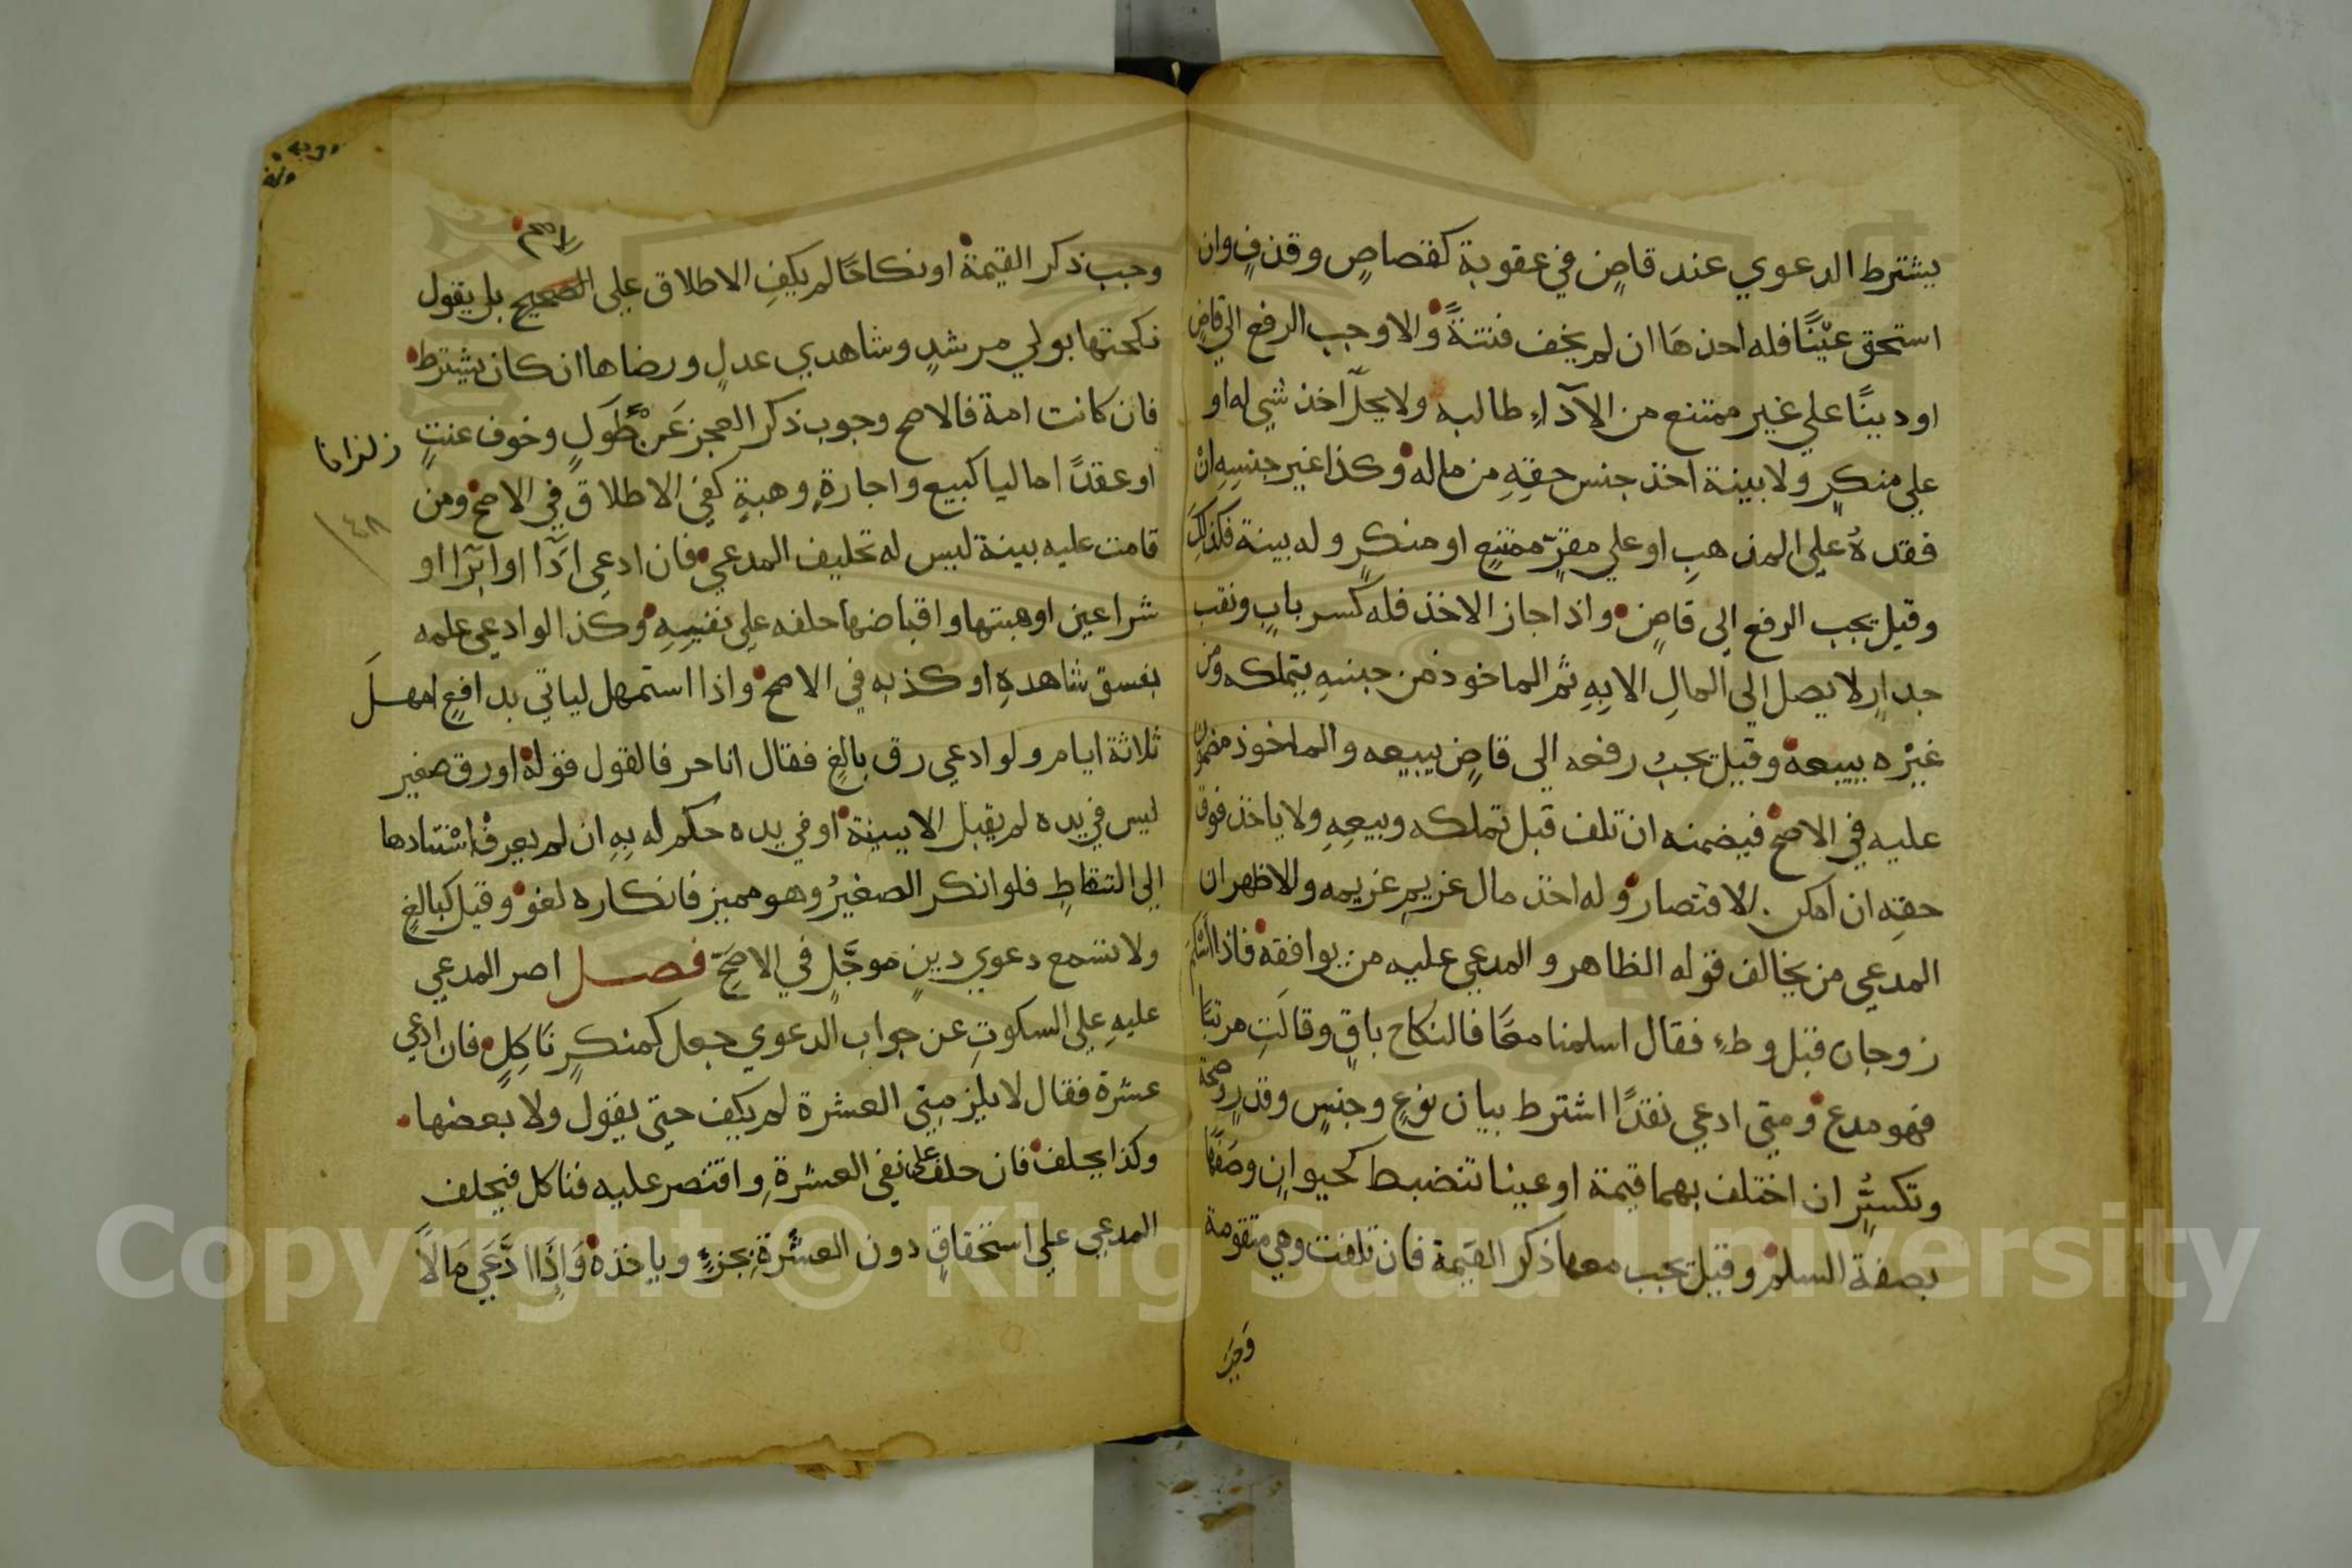 يشترط الدعوي عند قاضٍ في عقوبة كقصاصٍ وقذفٍ وان
استحق عيْنًا فله اخذهَا ان لم يخف فتنةً والا وجب الرفع الي قاضٍ
او دينًا علي غير ممتنع من الآدآءِ طالبه ولا يحلّ اخذ شي له او
علي منكرٍ ولا بينة اخذ جنس حقِهِ من ماله وكذا غير جنسِهِ انْ
فقدهُ علي المذهبِ او علي مقرٍّ ممتنعٍ او منكرٍ وله بينة فكذلكَ
وقيل يجب الرفع الي قاضٍ واذا جاز الاخذ فله كسر بابٍ ونقب
جدارٍ لا يصل الي المالِ الا بِهِ ثم الماخوذ من جنسهِ يتملكه ومن
غيْره يبيعه وقيل يجبُ رفعه الي قاضٍ يبيعه والماخوذ مضمون
عليه في الاصح فيضمنه ان تلف قبل تملكه وبيعِهِ ولا ياخذ فوق
حقِه ان امكن الاقتصار وله اخذ مال غريمِ غريمه والاظهر ان
المدعي من يخالف قوله الظاهر والمدعي عليه من يوافقه فاذا اسْلَمَ
زوجان قبل وطءٍ فقال اسلمنا معًا فالنكاح باقٍ وقالَتِ مرتبًا
فهو مدع ومتي ادعي نقدًا اشترط بيان نوعٍ وجنسٍ وقدرٍ وصحة
وتكسّرٍ ان اختلف بهما قيمة او عينا تنضبط كحيوانٍ وصَفَهَا
بصفة السلم وقيل يجب معها ذكر القيمة فان تلفت وهي متقومة
وجب
وجب ذكر القيمة او نكاحًا لم يكفِ الاطلاق علي الصحيح بل يقول
الاصح
نكحتها بولي مرشدٍ وشاهدي عدلٍ ورضاها ان كان يشترط
فان كانت امة فالاصح وجوب ذكر العجز عَن طَوَلٍ وخوف عنتٍ
او عقدًا ماليا كبيع واجارةٍ وهبةٍ كفي الاطلاق في الاصح ومن
٤٨
قامت عليه بينة ليس له تحليف المدعي فان ادعي ادًا او ابرًا او
شرا عين او هبتها واقباضها حلفه علي نفيِهِ وكذا لو ادعي علمه
بفسق شاهدهِ او كذبه في الاصح واذا استمهل لياتي بدافعٍ امهلَ
ثلاثة ايام ولو ادعي رق بالغٍ فقال انا حر فالقول قوله او رق صغير
ليس في يده لم يقبل الا ببينة او في يده حكم له بِهِ ان لم يعرفْ استنادها
الي التقاطِ فلو انكر الصغيرُ وهو مميز فانكاره لغو وقيل كبالغٍ
ولا تسمع دعوي دينٍ موجَّلٍ في الاصحّ فصل اصر المدعي
عليهِ علي السكوتِ عن جواب الدعوي جعل كمنكرٍ نَاكِلٍ فان ادعي
عشرة فقال لا يلزمني العشرة لم يكف حتي يقول ولا بعضها
وكذا يحلف فان حلف علي نفي العشرةِ واقتصر عليه فناكل فيحلف
المدعي علي استحقاقٍ دون العشْرةِ بجزءٍ وياخذه وَاذَا ادَّعَي مَالاً